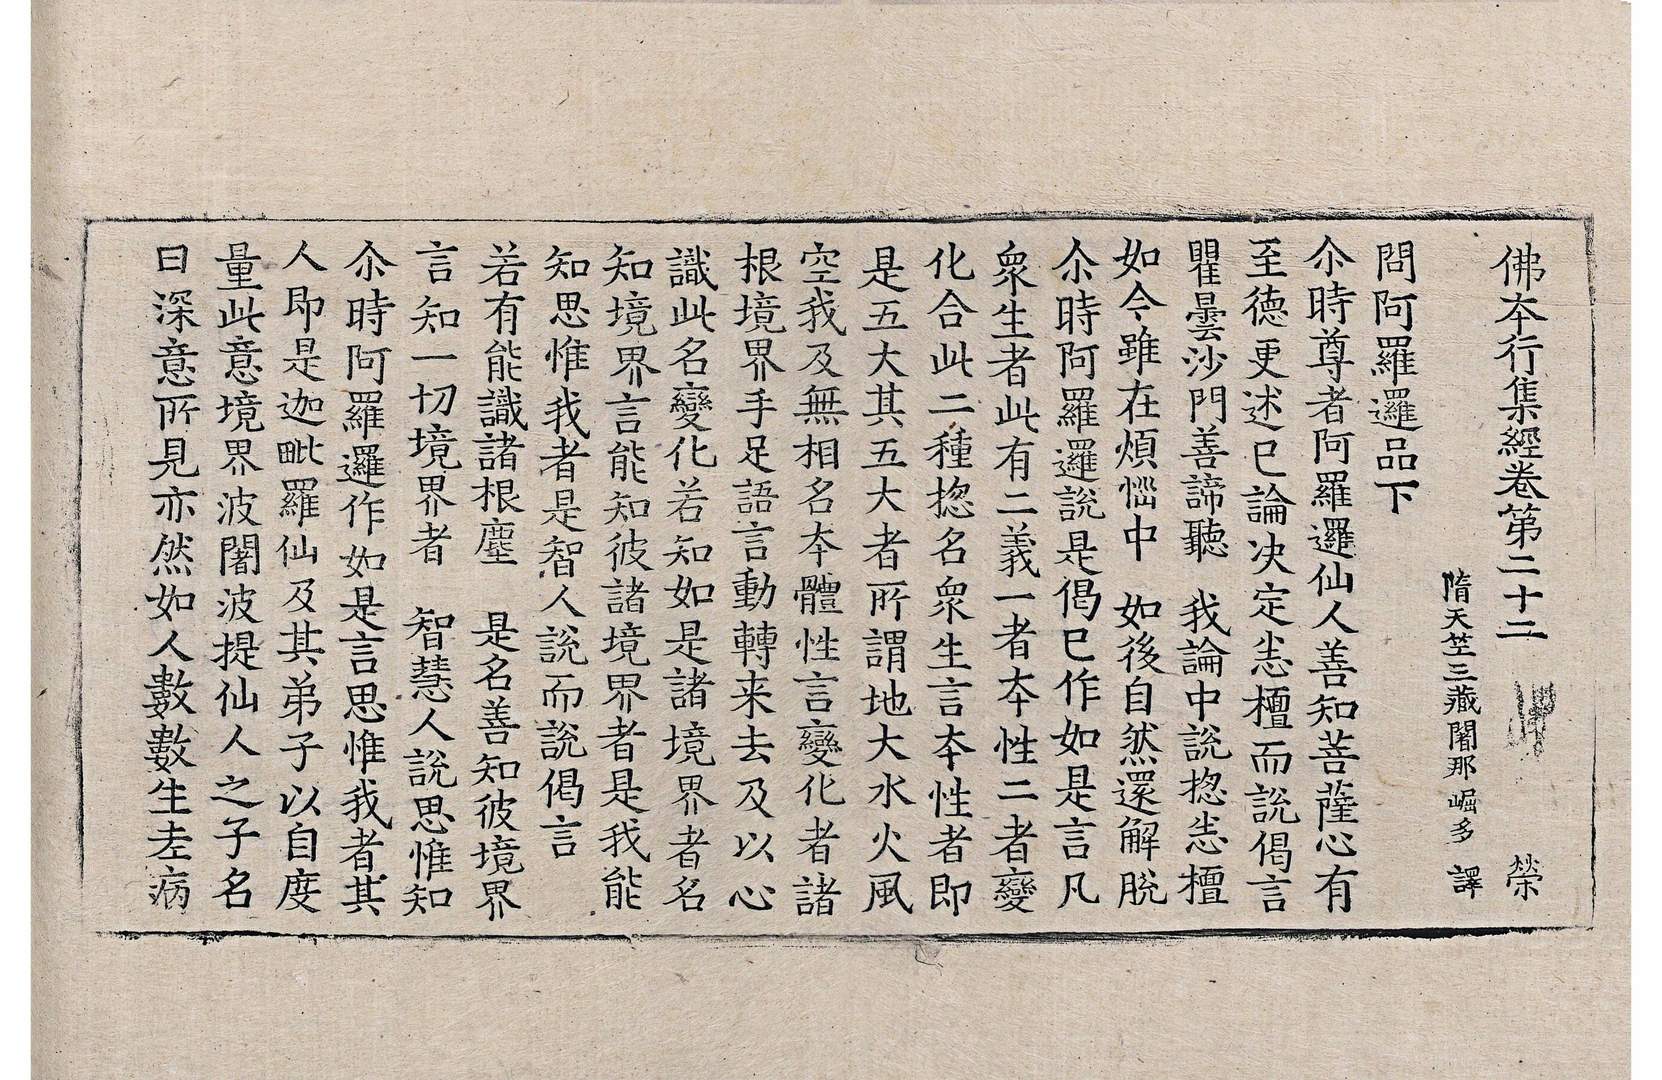 佛夲行集經卷第二十二 榮
隋天竺三藏闍那崛多 譯
問阿羅邏品下
尒時尊者阿羅邏仙人善知菩薩心有
至德更述已論决定悉檀而說偈言
瞿曇沙門善諦聽 我論中說揔悉檀
如今雖在煩惱中 如後自然還解脫
尒時阿羅邏說是偈已作如是言凡
衆生者此有二義一者夲性二者變
化合此二種揔名衆生言夲性者即
是五大其五大者所謂地大水火風
空我及無相名夲體性言變化者諸
根境界手足語言動轉来去及以心
識此名變化若知如是諸境界者名
知境界言能知彼諸境界者是我能
知思惟我者是智人說而說偈言
若有能識諸根塵 是名善知彼境界
言知一切境界者 智慧人說思惟知
尒時阿羅邏作如是言思惟我者其
人即是迦毗羅仙及其弟子以自度
量此意境界波闍波提仙人之子名
曰深意所見亦然如人數數生老病